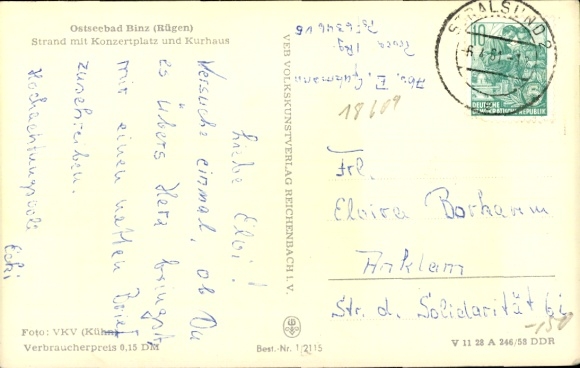 Ostseebad Binz (Rügen)
Strand mit Konzertplatz und Kurhaus
Liebe Elvi!
Versuche einmal, ob Du
es übers Herz bringst,
mir einen netten Brief
zuschreiben.
Hochachtungsvoll
Ecki
Foto: VKV (Kühn)
Verbraucherpreis 0,15 DM
VEB VOLKSKUNSTVERLAG REICHENBACH i. V.
Best.-Nr. 1/2115
Abs. E.
18609
STRALSUND 2
10
DEUTSCHE
DEMOKRATISCHE REPUBLIK
Frl.
Elvira Borkamm
Anklam
Str. d. Solidarität 6
-150
V 11 28 A 246/58 DDR